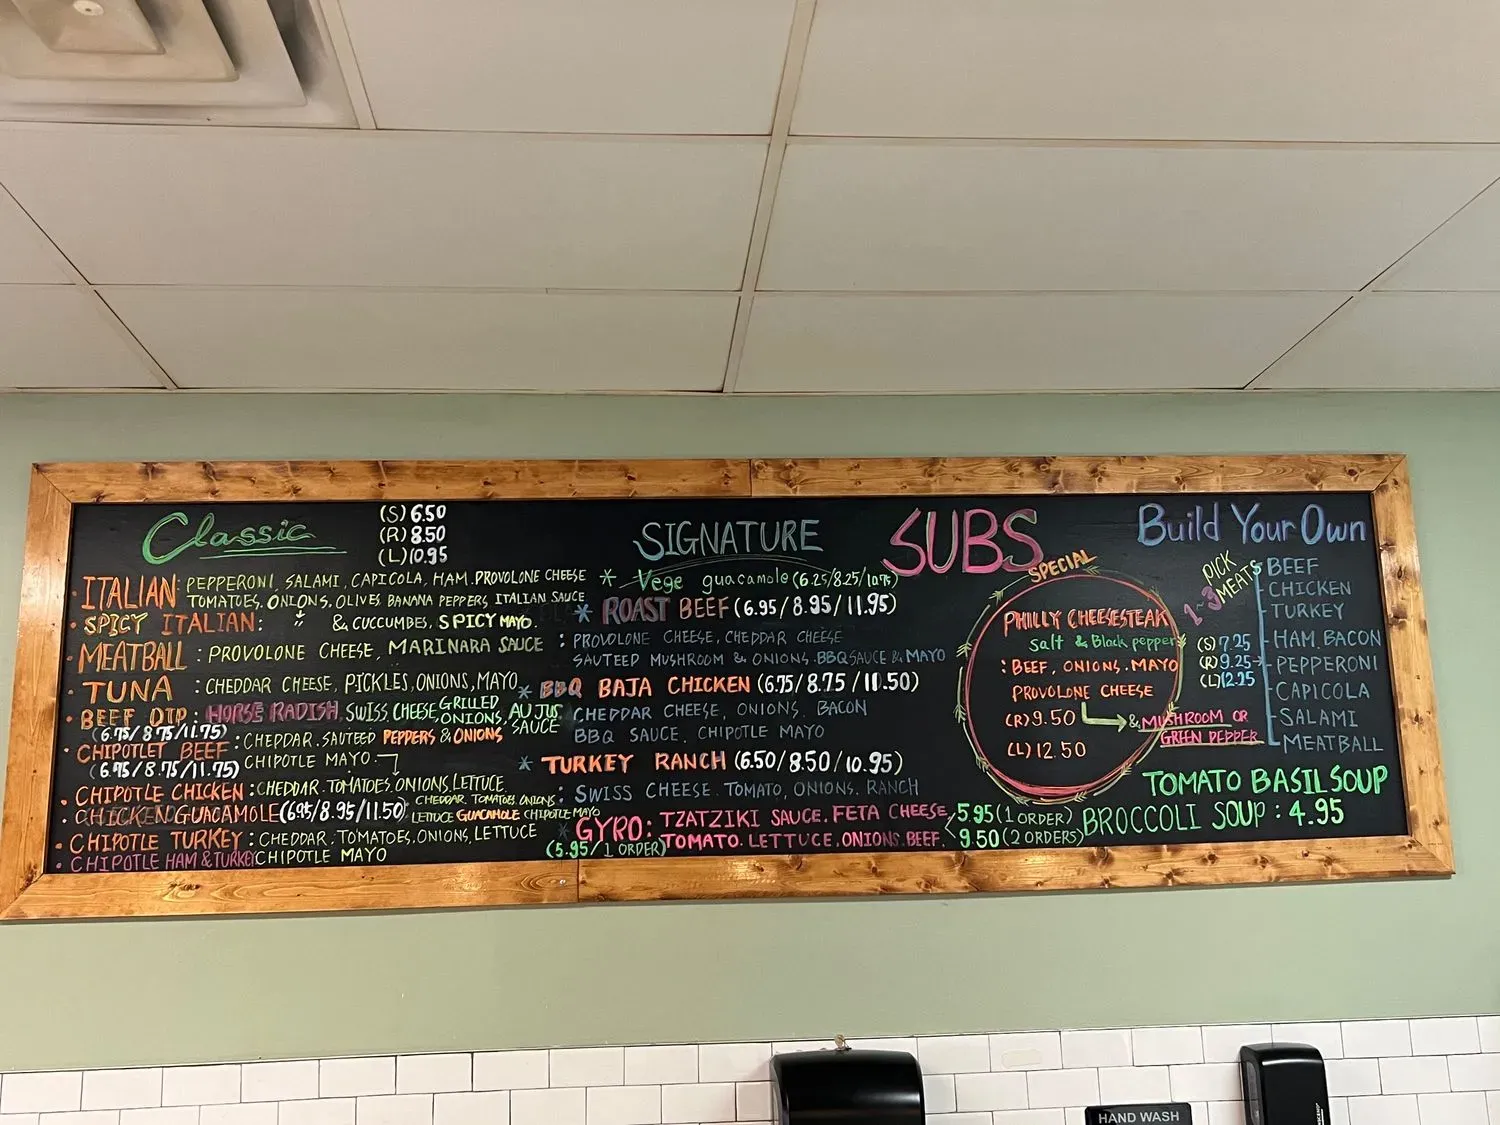 Classic
(S) 6.50
(R) 8.50
(L) 10.95
ITALIAN: PEPPERONI, SALAMI, CAPICOLA, HAM, PROVOLONE CHEESE
TOMATOES, ONIONS, OLIVES, BANANA PEPPERS, ITALIAN SAUCE
SPICY ITALIAN: " & CUCCUMBES, SPICY MAYO.
MEATBALL: PROVOLONE CHEESE, MARINARA SAUCE
TUNA: CHEDDAR CHEESE, PICKLES, ONIONS, MAYO
BEEF DIP: HORSE RADISH, SWISS CHEESE, GRILLED ONIONS, AU JUS SAUCE
(6.75/8.75/11.75)
CHIPOTLET BEEF: CHEDDAR. SAUTEED PEPPERS & ONIONS
(6.75/8.75/11.75) CHIPOTLE MAYO
CHIPOTLE CHICKEN: CHEDDAR. TOMATOES, ONIONS, LETTUCE
CHICKEN GUACAMOLE (6.95/8.95/11.50) CHEDDAR. TOMATOES. ONIONS.
LETTUCE GUACAMOLE CHIPOTLE MAYO
CHIPOTLE TURKEY: CHEDDAR. TOMATOES, ONIONS, LETTUCE
CHIPOTLE HAM & TURKEY CHIPOTLE MAYO
SIGNATURE SUBS
* Vege guacamole (6.25/8.25/10.75)
* ROAST BEEF (6.95/8.95/11.95)
: PROVOLONE CHEESE, CHEDDAR CHEESE
SAUTEED MUSHROOM & ONIONS. BBQ SAUCE & MAYO
* BBQ BAJA CHICKEN (6.75/8.75/11.50)
: CHEDDAR CHEESE, ONIONS, BACON
BBQ SAUCE, CHIPOTLE MAYO
* TURKEY RANCH (6.50/8.50/10.95)
: SWISS CHEESE. TOMATO, ONIONS. RANCH
* GYRO: TZATZIKI SAUCE. FETA CHEESE, 5.95 (1 ORDER)
(5.95/1 ORDER) TOMATO. LETTUCE. ONIONS. BEEF. 9.50 (2 ORDERS)
SPECIAL
PHILLY CHEESESTEAK
Salt & Black pepper
: BEEF, ONIONS, MAYO
PROVOLONE CHEESE
(R) 9.50
& MUSHROOM OR
GREEN PEPPER
(L) 12.50
Build Your Own
PICK
1~3 MEATS
(S) 7.25
(R) 9.25
(L) 12.25
BEEF
CHICKEN
TURKEY
HAM. BACON
PEPPERONI
CAPICOLA
SALAMI
MEATBALL
TOMATO BASIL SOUP
BROCCOLI SOUP: 4.95
HAND WASH